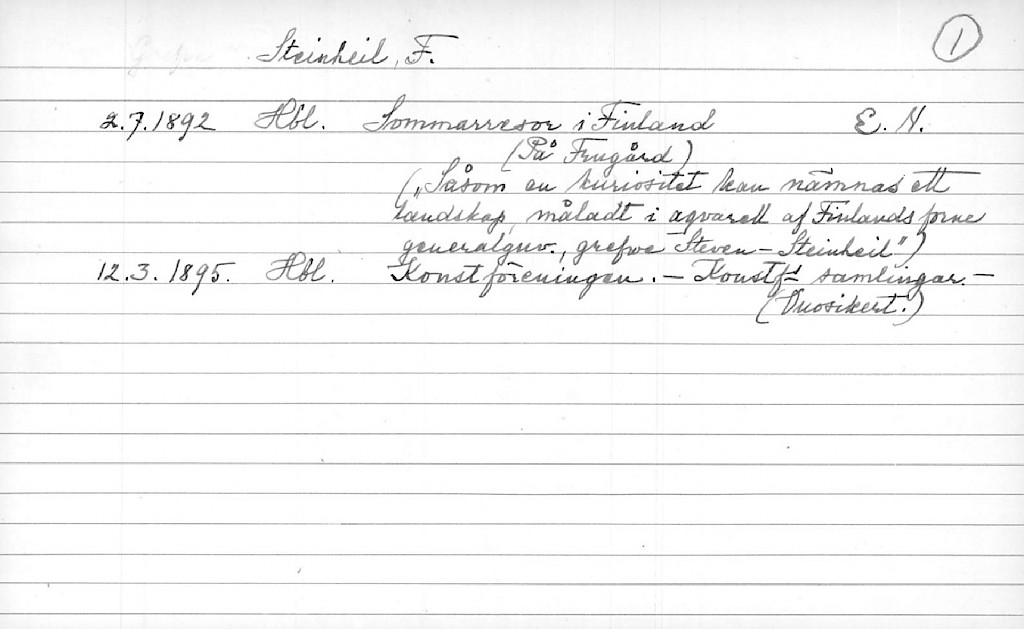 Steinheil, F. 1
2.7.1892 Hbl. Sommarresor i Finland E. N.
(På Frugård)
(„Såsom en kuriositet kan nämnas ett
landskap, måladt i aqvarell af Finlands forne
generalguv., grefwe Steven-Steinheil")
12.3.1895. Hbl. Konstföreningen. – Konstf:s samlingar. –
(Vuosikert.)